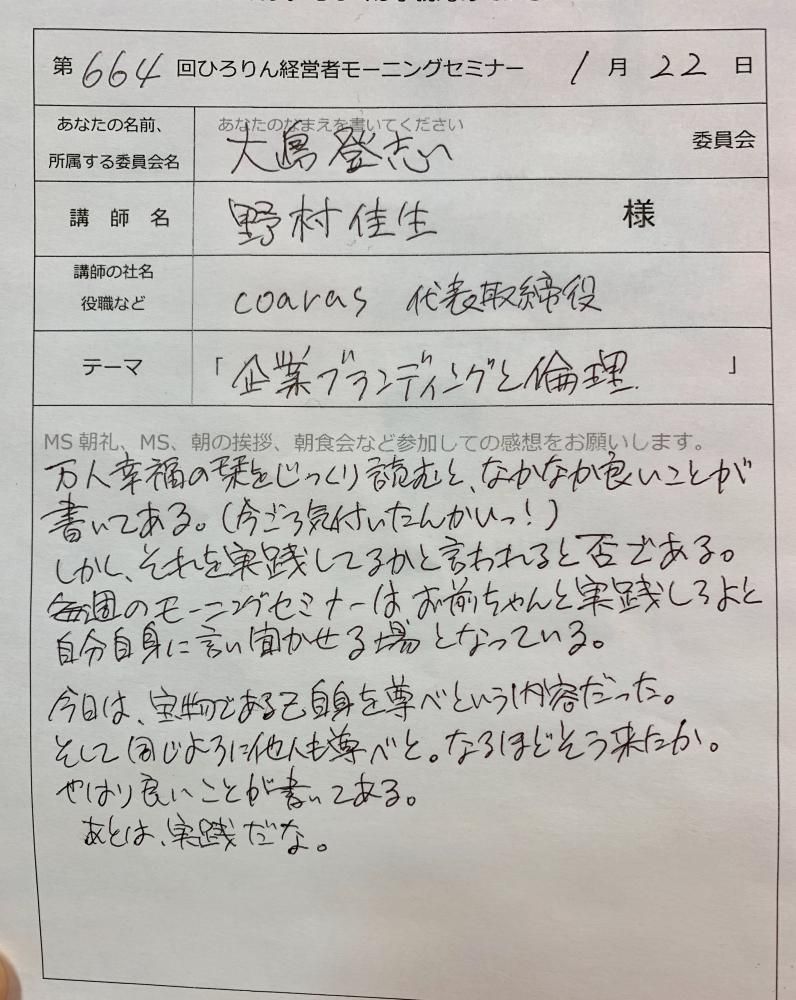 第664回ひろりん経営者モーニングセミナー 1月22日
あなたの名前、
所属する委員会名
あなたのなまえを書いてください
大島登志
委員会
講師名 野村佳生 様
講師の社名
役職など
coaras 代表取締役
テーマ 「企業ブランディングと倫理」
MS朝礼、MS、朝の挨拶、朝食会など参加しての感想をお願いします。
万人幸福の栞をじっくり読むと、なかなか良いことが
書いてある。(今ごろ気付いたんかいっ!)
しかし、それを実践してるかと言われると否である。
毎週のモーニングセミナーは、お前ちゃんと実践しろよと
自分自身に言い聞かせる場となっている。
今日は、宝物である己自身を尊べという内容だった。
そして同じように他人も尊べと。なるほどそう来たか。
やはり良いことが書いてある。
あとは、実践だな。